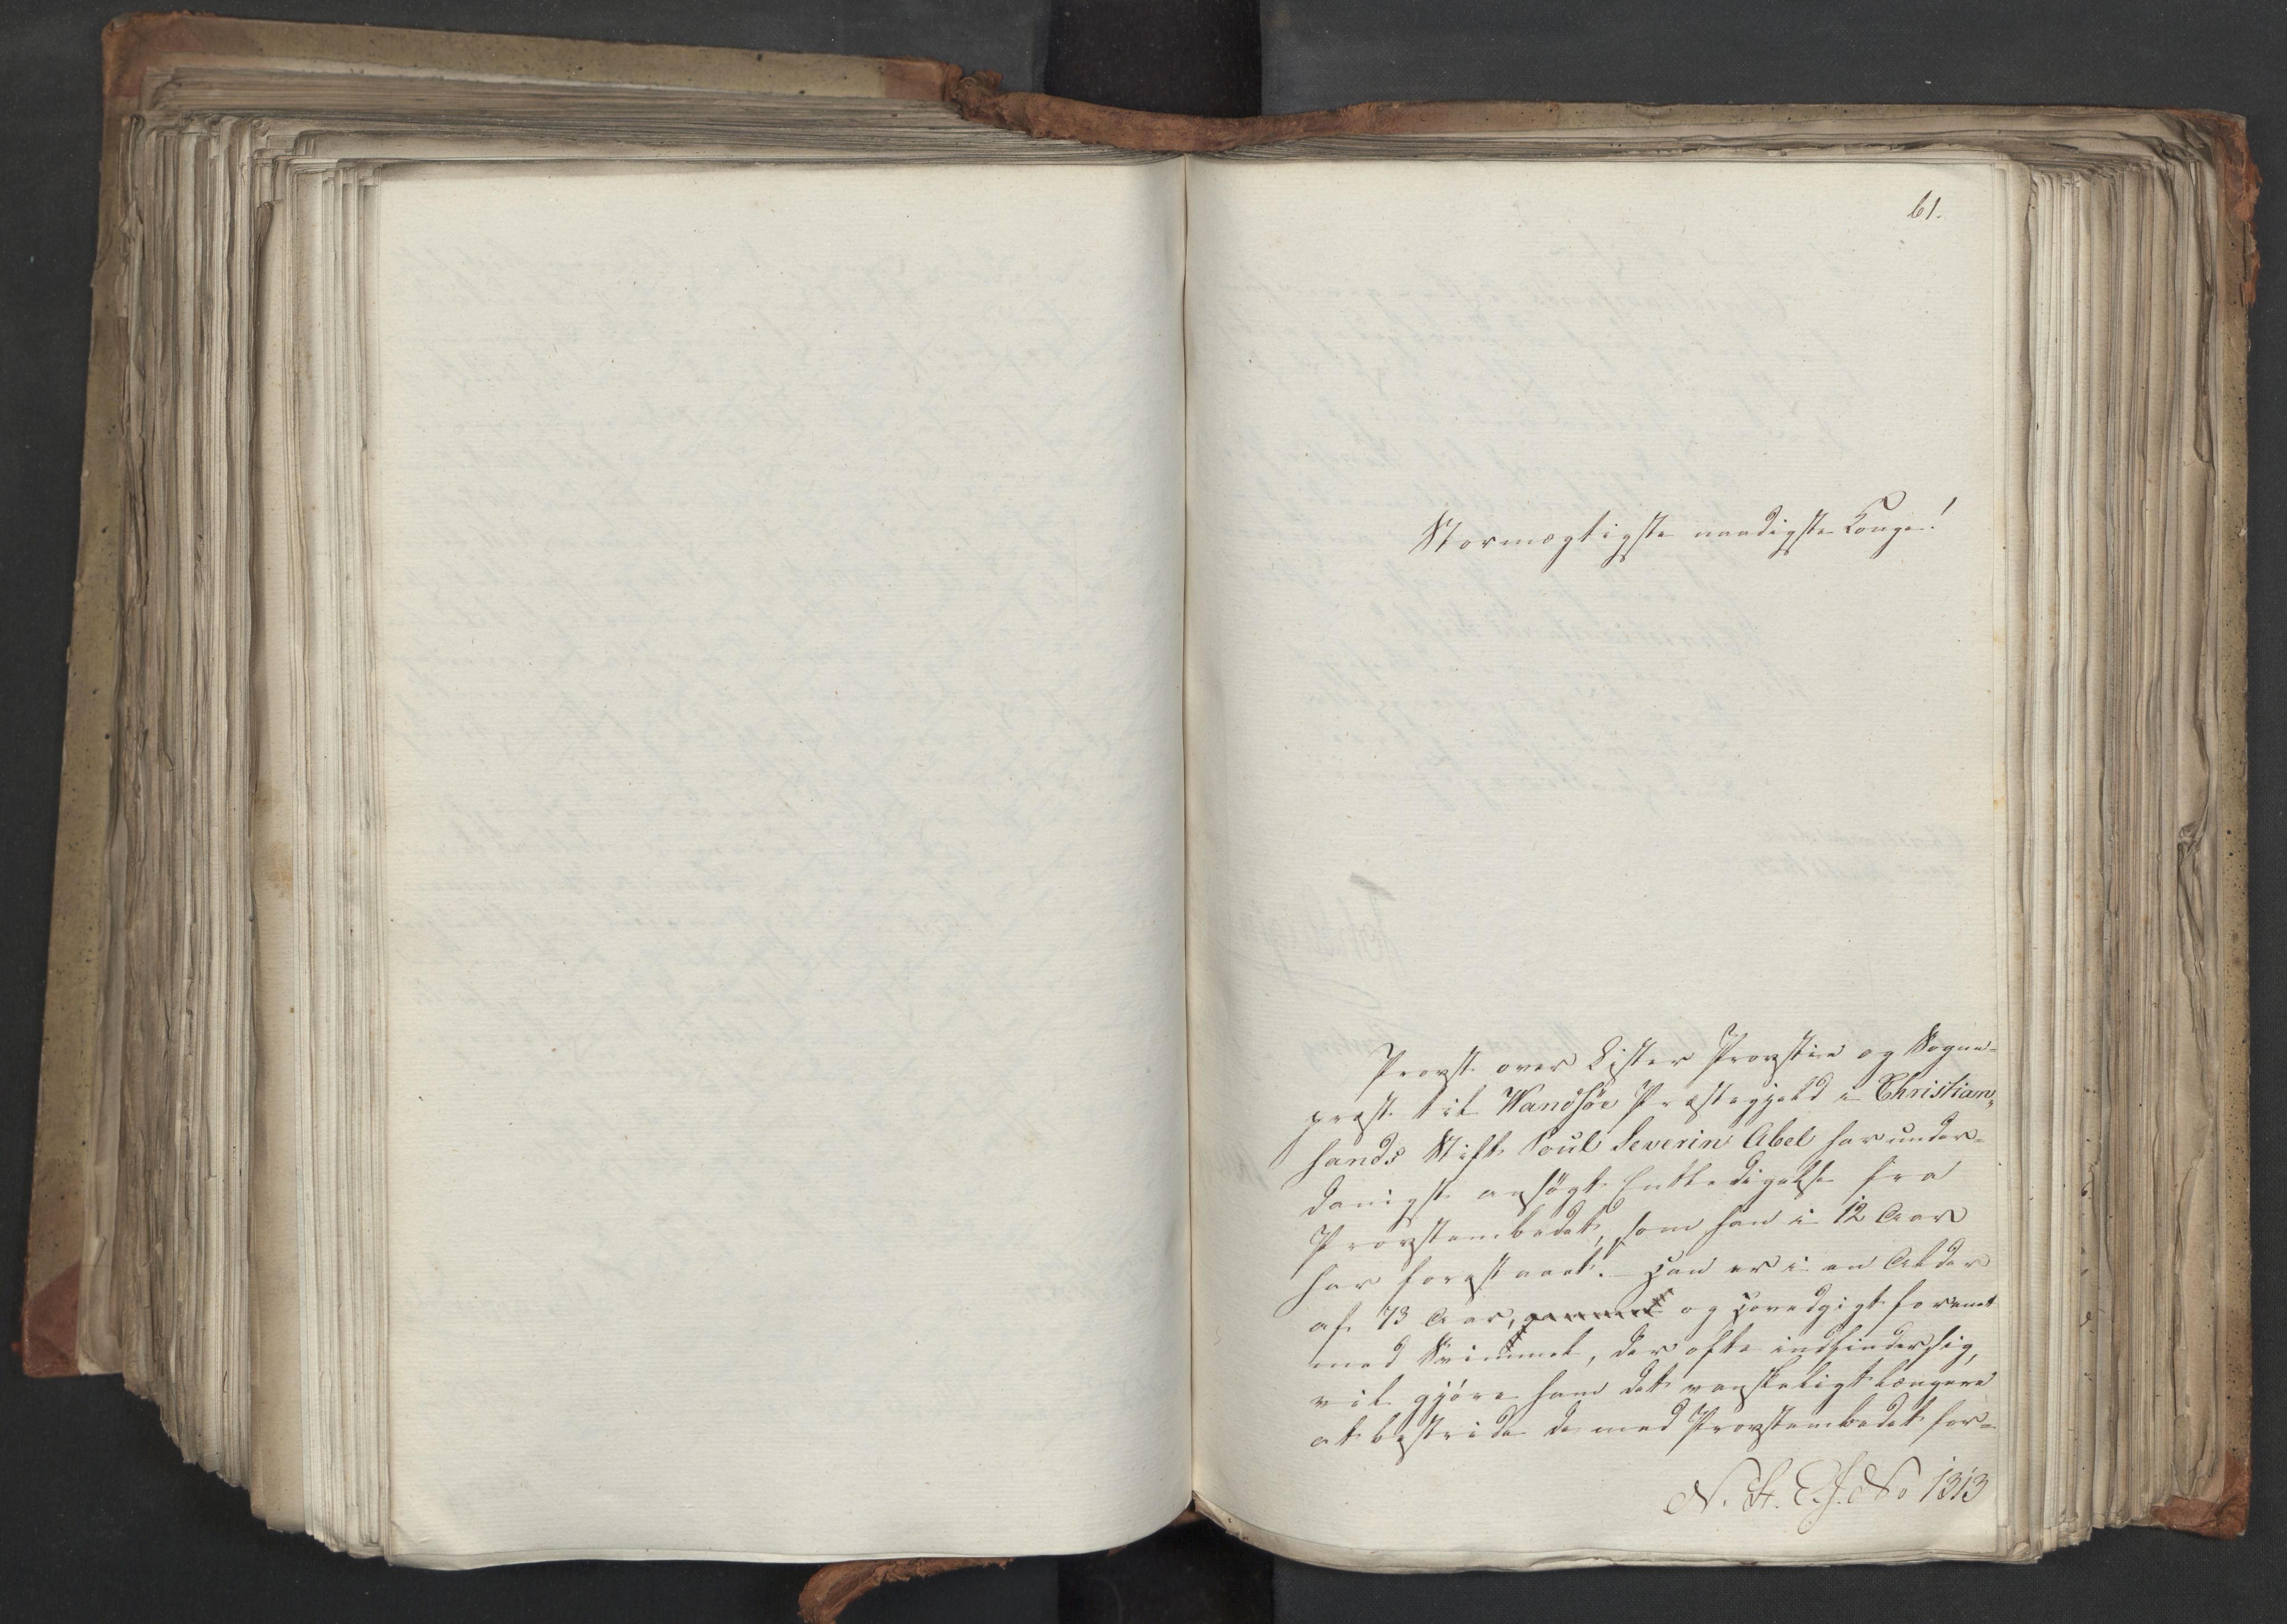 61.
Stormægtigste naadigste Konge!
Provst over Lister Provstie og Sogne-
præst til Wandsøe Præstegjeld i Christian,,
sands Stift Poul Severin Abel har under-
danigst ansøgt Entledigelse fra
Provstembedet, som han i 12 Aar
har forestaaet. - Han er i en Alder
af 73 Aar, og Hovedgigt forenet
med Svimmel, der ofte indfinder sig,
vil gjöre ham det vanskeligt længere
at bestride de med Provstembedet for-
N. St. E. J. No 1313